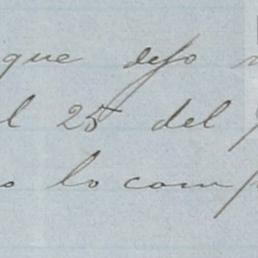 que dejo
el 25 del
lo comp